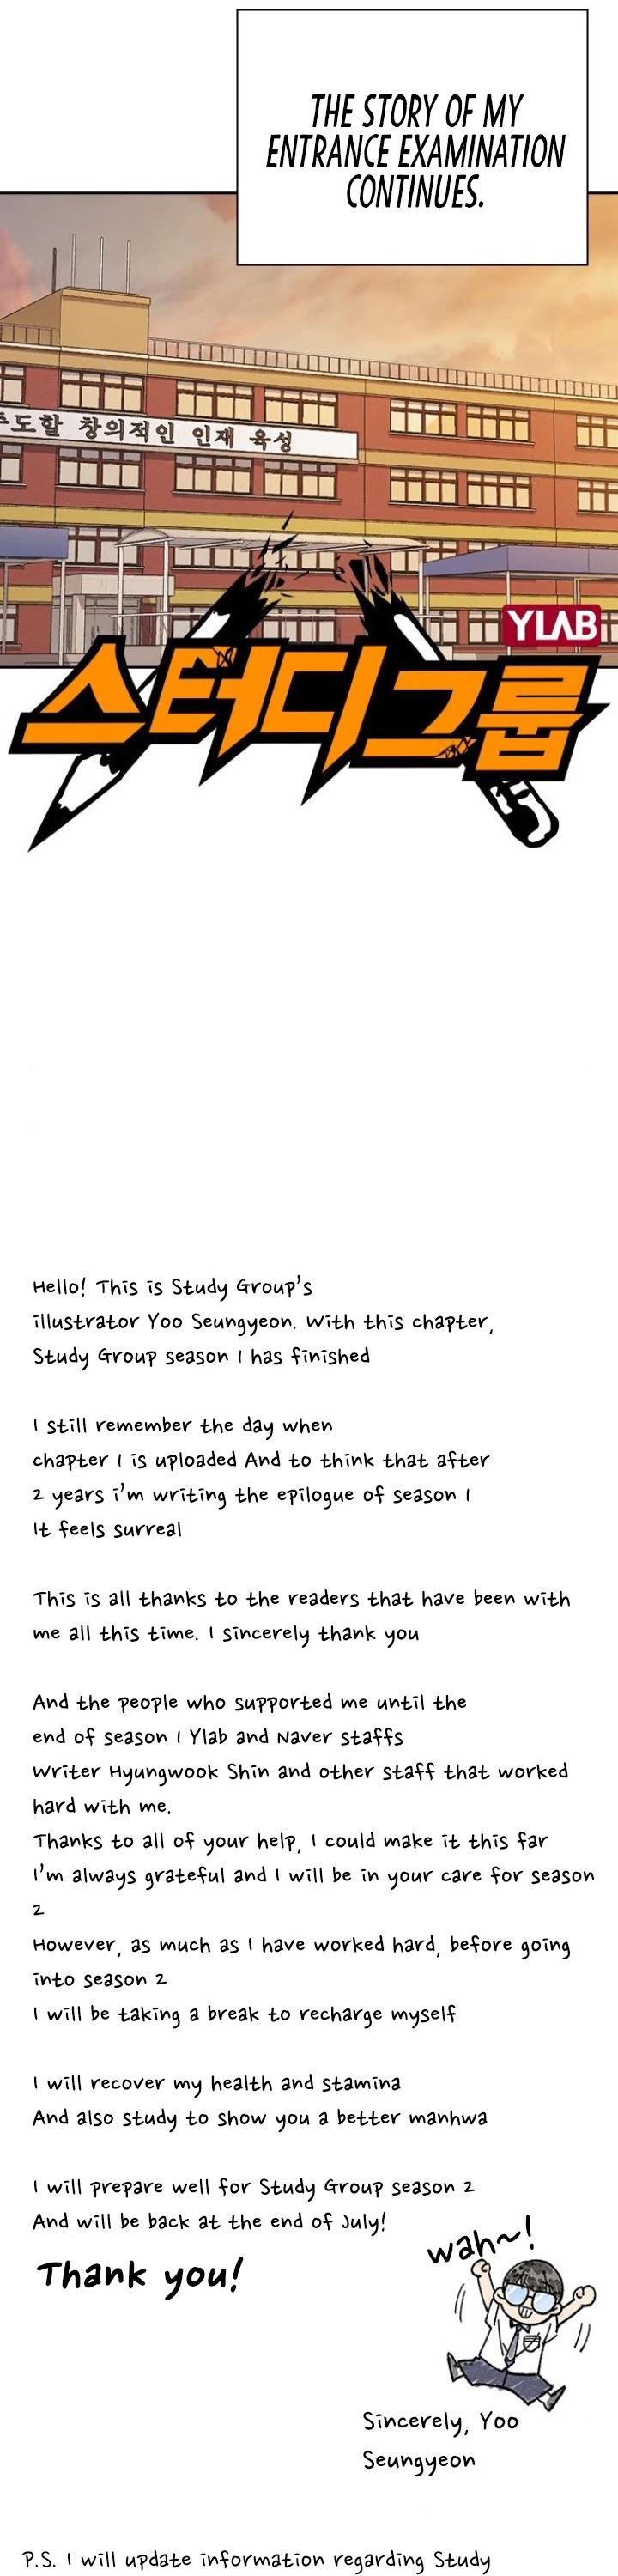 THE STORY OF MY
ENTRANCE EXAMINATION
CONTINUES.
도할 창의적인 인재 육성
YLAB
스터디그룹
Hello! This is Study Group's
illustrator Yoo Seungyeon. With this chapter,
Study Group season 1 has finished
I still remember the day when
chapter 1 is uploaded And to think that after
2 years i'm writing the epilogue of season 1
It feels surreal
This is all thanks to the readers that have been with
me all this time. I sincerely thank you
And the people who supported me until the
end of season 1 Ylab and Naver staffs
Writer Hyungwook Shin and other staff that worked
hard with me.
Thanks to all of your help, I could make it this far
I'm always grateful and I will be in your care for season
2
However, as much as I have worked hard, before going
into season 2
I will be taking a break to recharge myself
I will recover my health and stamina
And also study to show you a better manhwa
I will prepare well for Study Group season 2
And will be back at the end of July!
wah~!
Thank you!
Sincerely, Yoo
Seungyeon
P.S. I will update information regarding Study